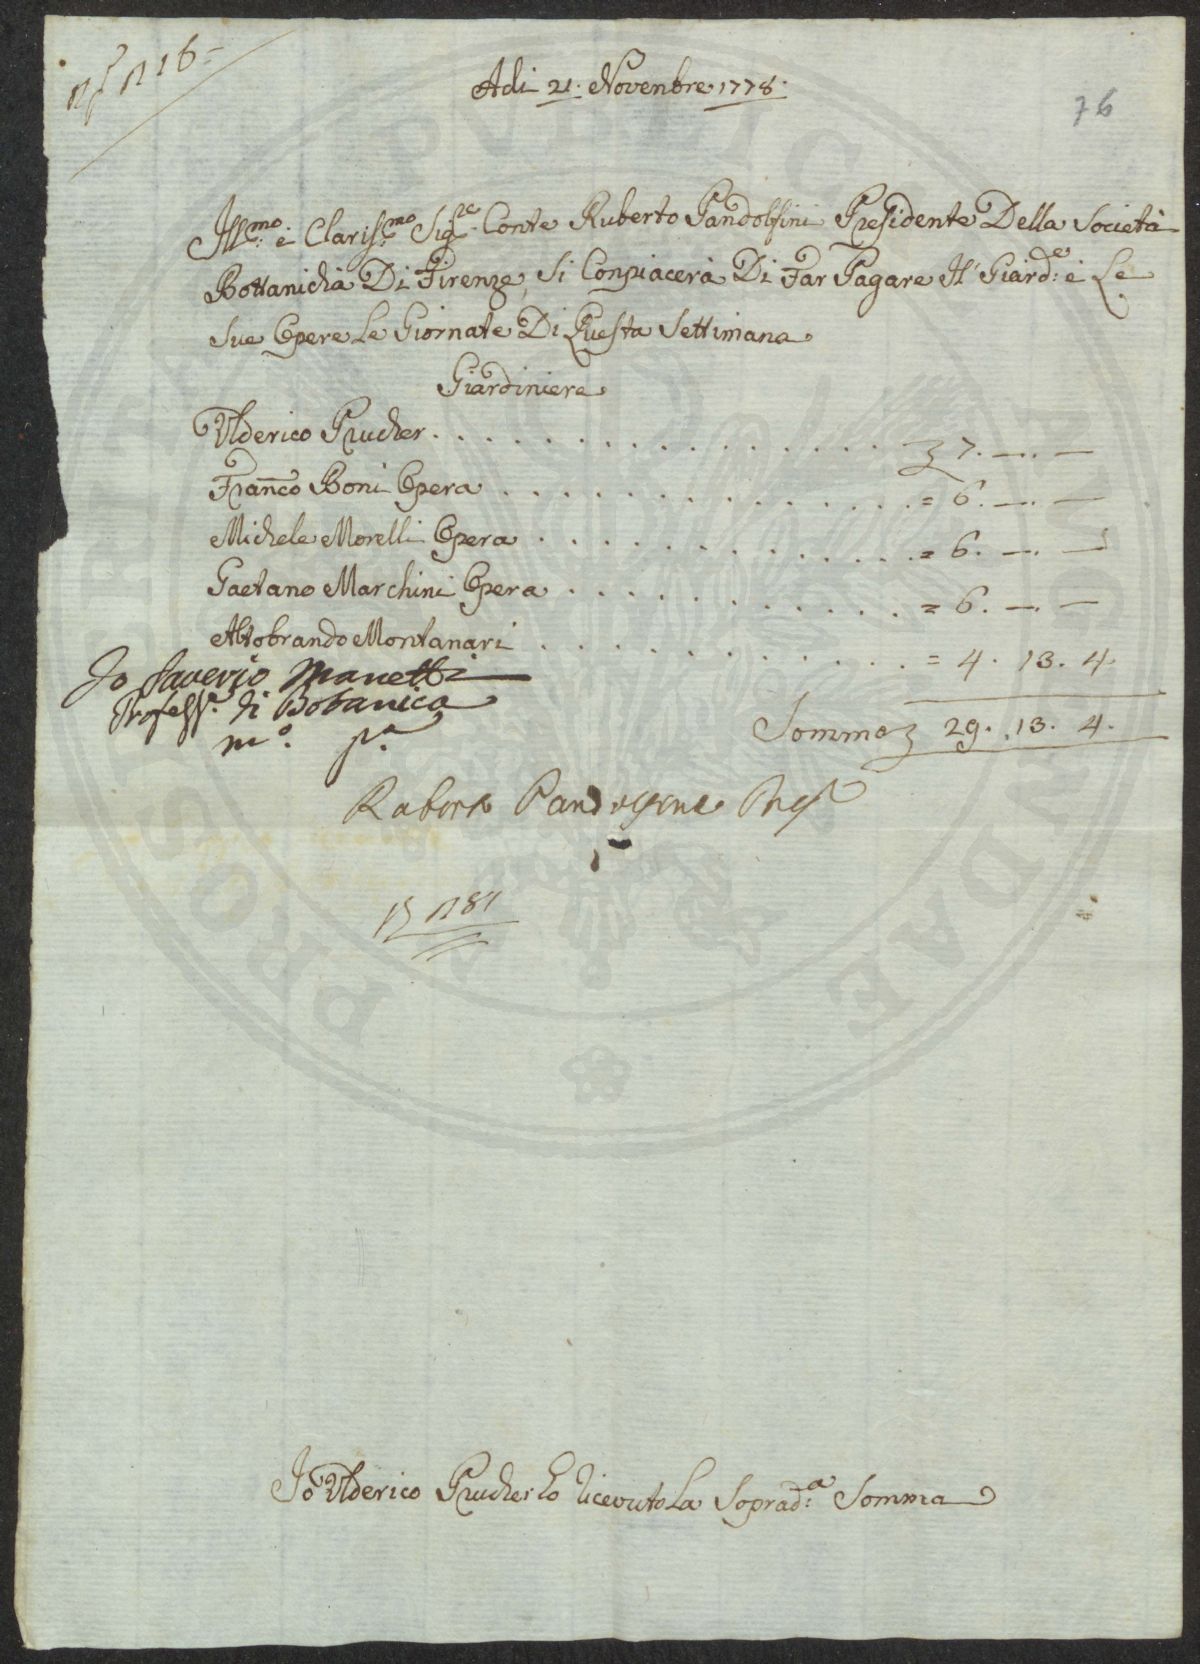 Adi 21. Novenbre 1778.
76
Ill:mo è Clariss:mo Sig:re Conte Ruberto Pandolfini Presidente Della Società
Bottanicha Di Firenze, Si Conpiacerà Di Far Pagare Il Giard:e è Le
Sue Opere Le Giornate Di Questa Settimana
Giardiniere
Ulderico Prucher . . . . . . . . . . . . . . . . . 7. —. —
Franco Boni Opera . . . . . . . . . . . . . . . = 6. —. —
Michele Morelli Opera . . . . . . . . . . . . . . = 6. —. —
Gaetano Marchini Opera . . . . . . . . . . . . . = 6. —. —
Aldobrando Montanari . . . . . . . . . . . . . . = 4. 13. 4.
Io Saverio Manetti
Profess.e di Botanica
m.o p.a
Somma 29. 13. 4.
Roberto Pandolfini Pres
Io Ulderico Prucher ho ricevuto La Soprad:a Somma
PROSPERITATI PUBLICAE